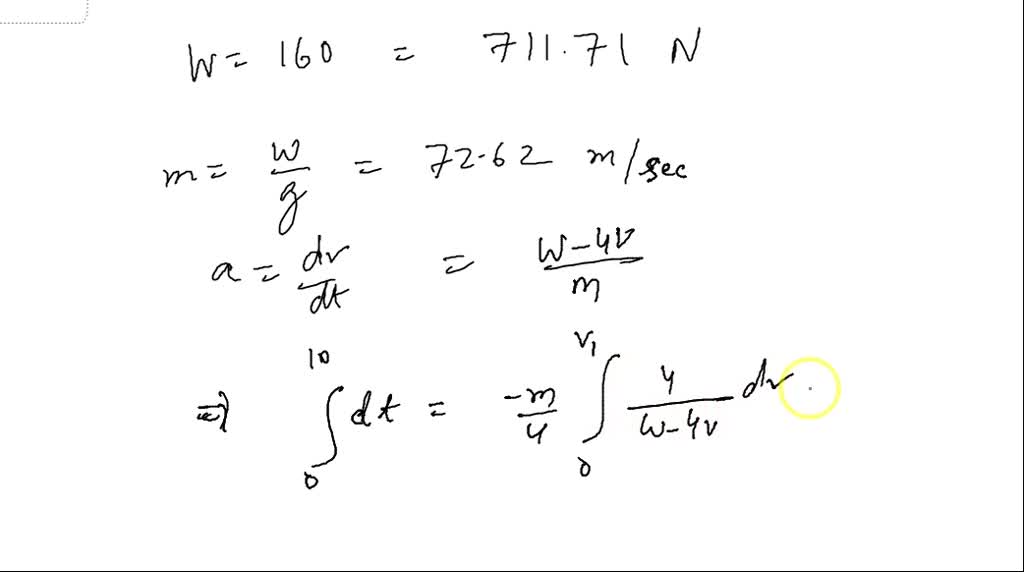 W = 160 = 711.71 N
m = w/g = 72.62 m/sec
a = dv/dt = (W-4V)/m
⇒ ∫₀¹⁰ dt = -m/4 ∫₀^V₁ 4/(W-4V) dv